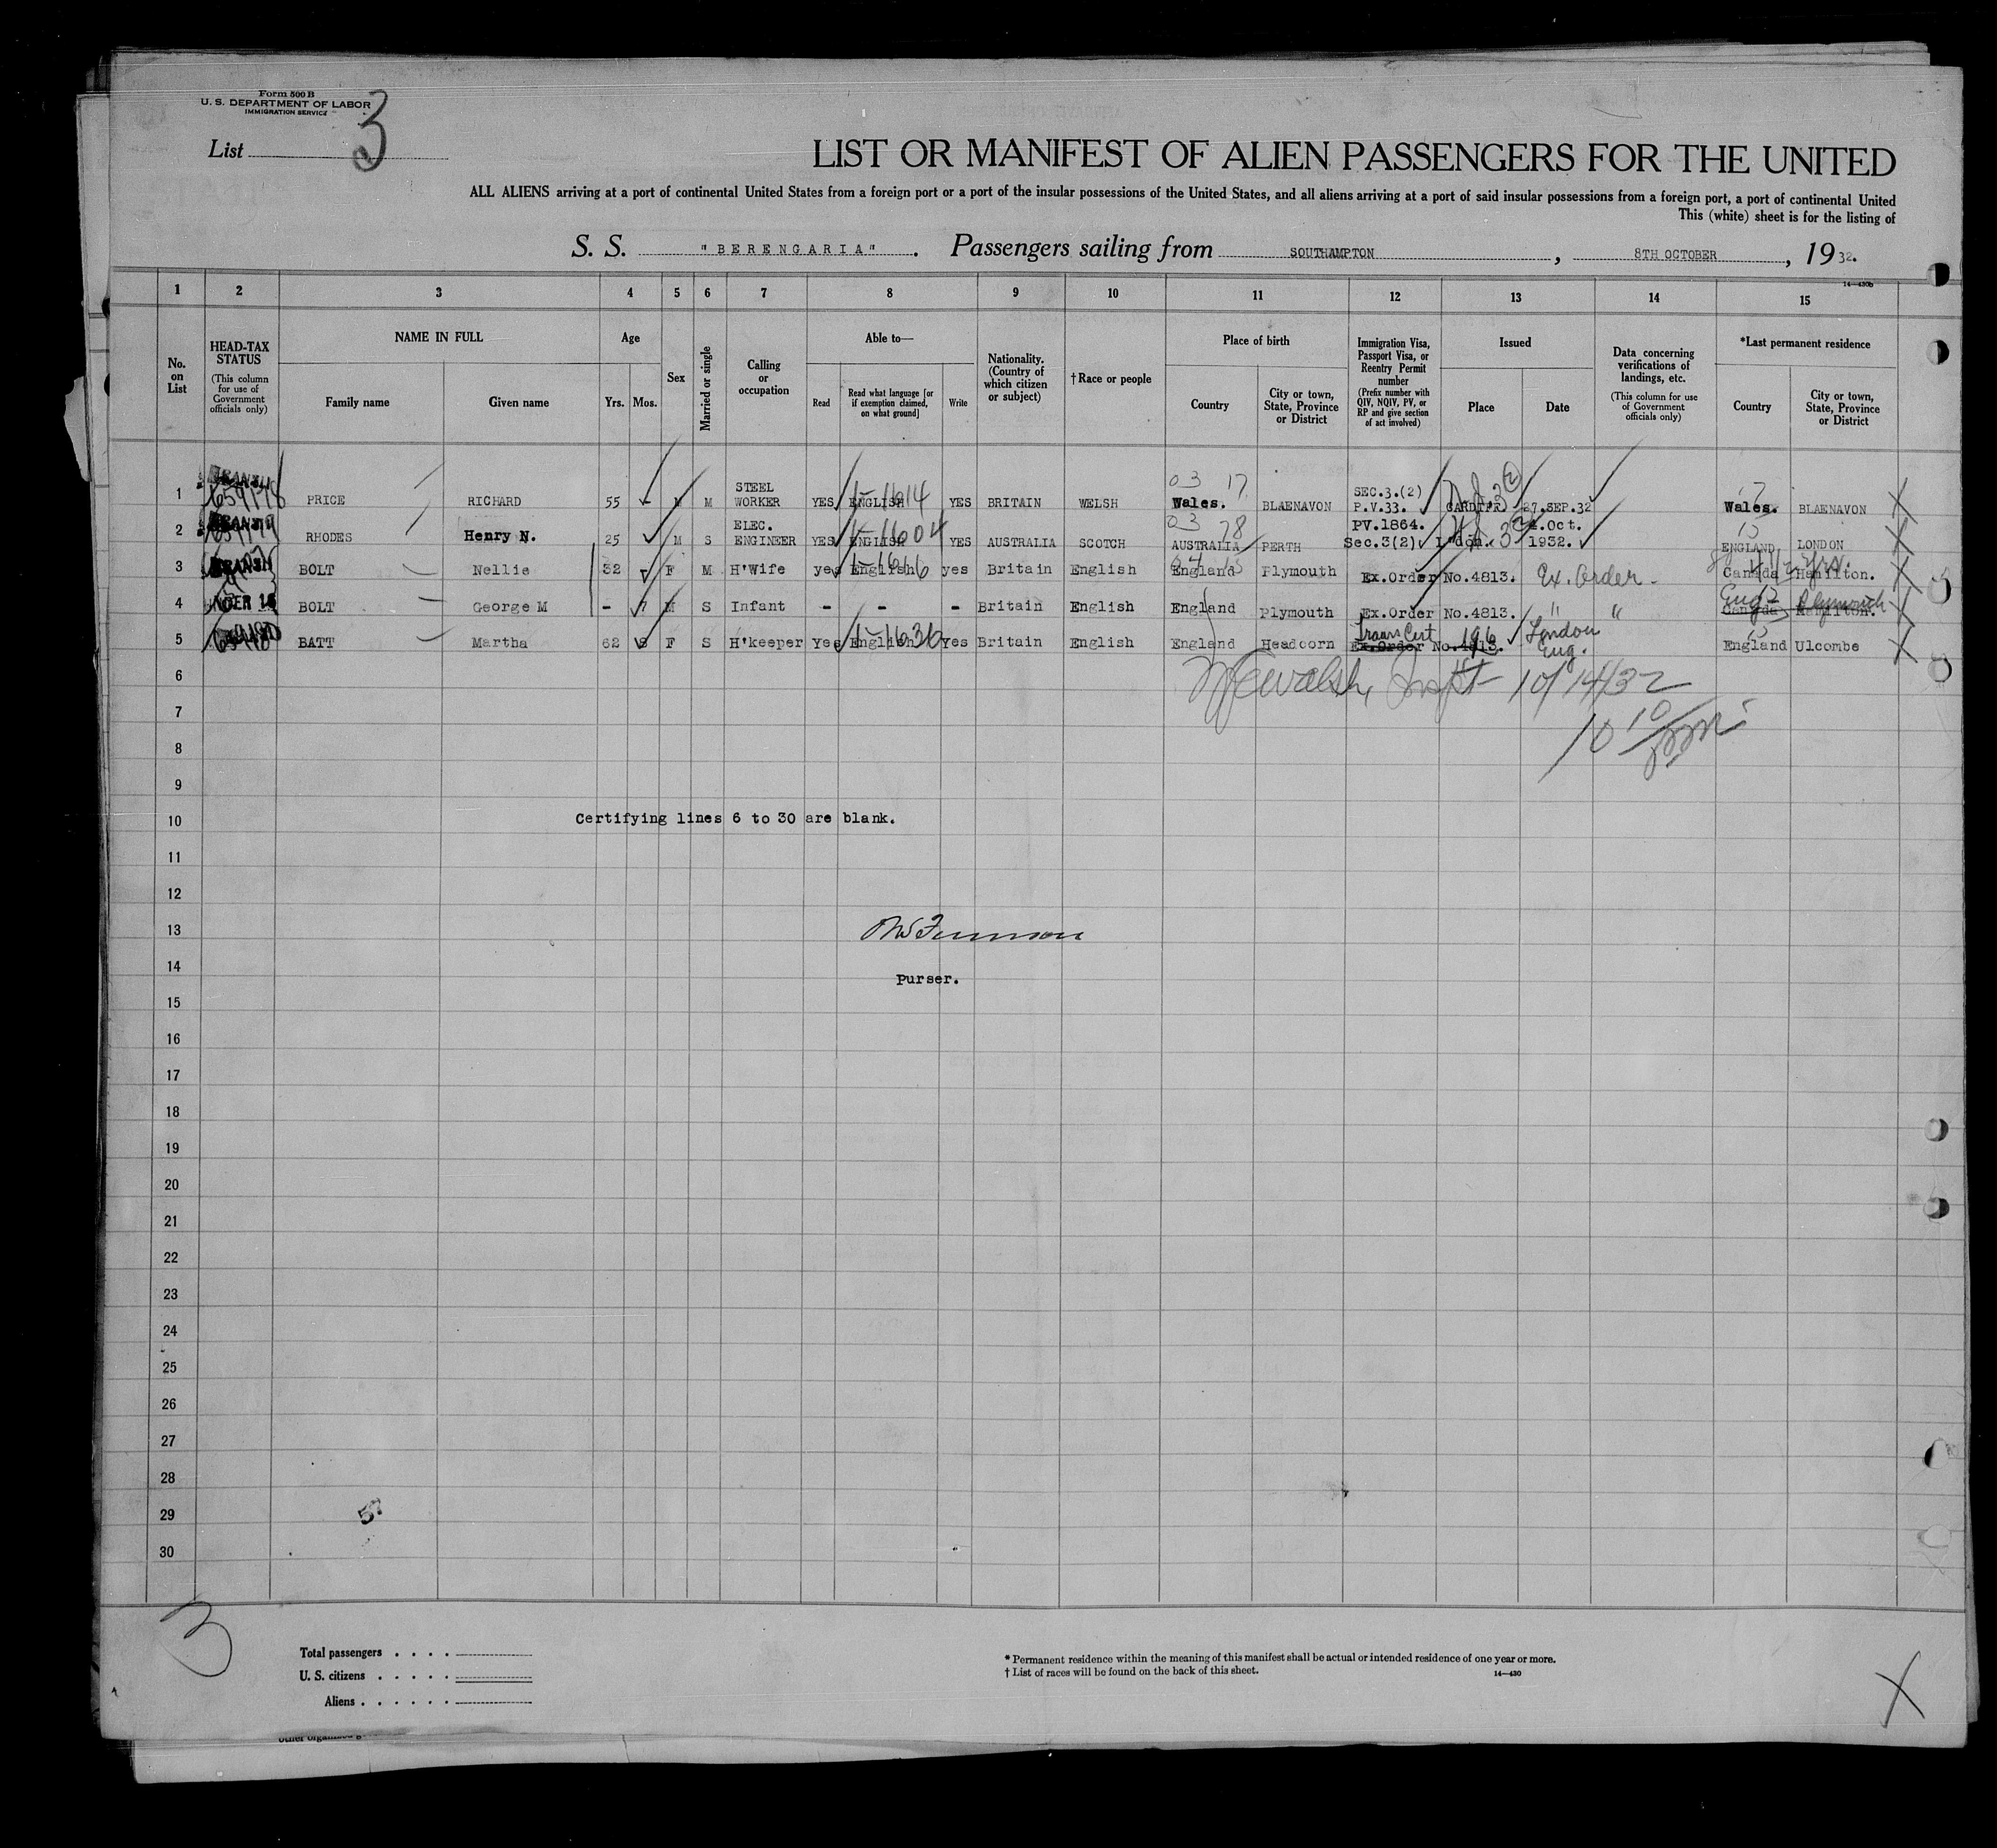 Form 500 B
U. S. DEPARTMENT OF LABOR
IMMIGRATION SERVICE
List 3
LIST OR MANIFEST OF ALIEN PASSENGERS FOR THE UNITED
ALL ALIENS arriving at a port of continental United States from a foreign port or a port of the insular possessions of the United States, and all aliens arriving at a port of said insular possessions from a foreign port, a port of continental United
This (white) sheet is for the listing of
S. S. "BERENGARIA". Passengers sailing from SOUTHAMPTON, 8TH OCTOBER, 1932.
14—430b
1 2 3 4 5 6 7 8 9 10 11 12 13 14 15
No. on List
HEAD-TAX STATUS
(This column for use of Government officials only)
NAME IN FULL
Family name
Given name
Age
Yrs. Mos.
Sex
Married or single
Calling or occupation
Able to—
Read
Read what language [or if exemption claimed, on what ground]
Write
Nationality. (Country of which citizen or subject)
†Race or people
Place of birth
Country
City or town, State, Province or District
Immigration Visa, Passport Visa, or Reentry Permit number
(Prefix number with QIV, NQIV, PV, or RP and give section of act involved)
Issued
Place
Date
Data concerning verifications of landings, etc.
(This column for use of Government officials only)
*Last permanent residence
Country
City or town, State, Province or District
1 PRICE RICHARD 55 - M M STEEL WORKER YES ENGLISH YES BRITAIN WELSH Wales. BLAENAVON SEC.3.(2) P.V.33. CARDIFF 27.SEP.32 Wales. BLAENAVON
2 RHODES Henry N. 25 M S ELEC. ENGINEER YES ENGLISH YES AUSTRALIA SCOTCH AUSTRALIA PERTH PV.1864. Sec.3(2) London. 4.Oct. 1932. ENGLAND LONDON
3 BOLT Nellie 32 F M H'Wife yes English yes Britain English England Plymouth Ex.Order No.4813. Ex. Order Canada Hamilton.
4 UNDER 16 BOLT George M - 7 M S Infant - - - Britain English England Plymouth Ex.Order No.4813. " " Canada Hamilton. Eng Plymouth
5 BATT Martha 62 8 F S H'keeper Yes English Yes Britain English England Headcorn Ex.Order No.4813. Trans Cert 196 London Eng. England Ulcombe
6 Walsh, Inspt 10/14/32
7 10 10
8
9
10 Certifying lines 6 to 30 are blank.
11
12
13
14 Purser.
15
16
17
18
19
20
21
22
23
24
25
26
27
28
29
30
3
Total passengers . . . .
U. S. citizens . . . . .
Aliens . . . . . .
* Permanent residence within the meaning of this manifest shall be actual or intended residence of one year or more.
† List of races will be found on the back of this sheet.
14—430